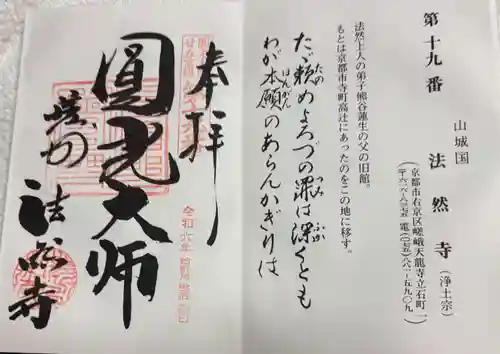 第十九番
山城国
法然寺（浄土宗）
（京都市右京区嵯峨天龍寺立石町一
法然上人の弟子熊谷蓮生の父の旧館。
もとは京都市寺町高辻にあったのをこの地に移す。
たゞ頼めよろづの罪は深くとも
わが本願のあらんかぎりは
奉拝
圓光大師
法然寺
令和六年